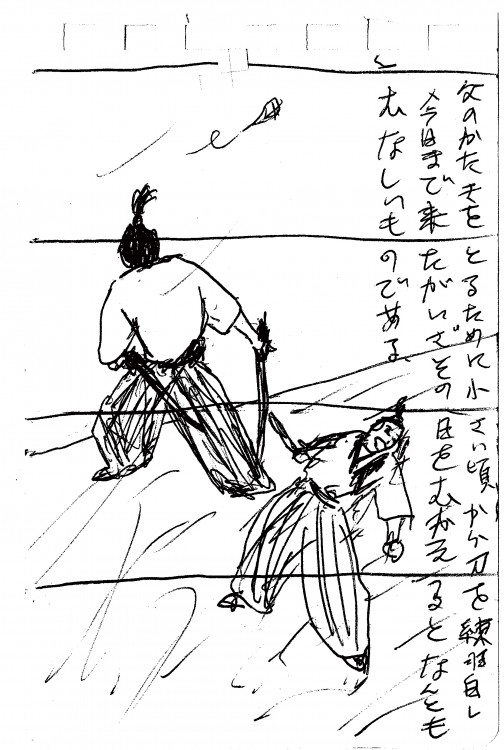 父のかたきをとるために小さい頃から刀を練習し
今日まで来たがいざその日をむかえるとなんとも
むなしいものである、